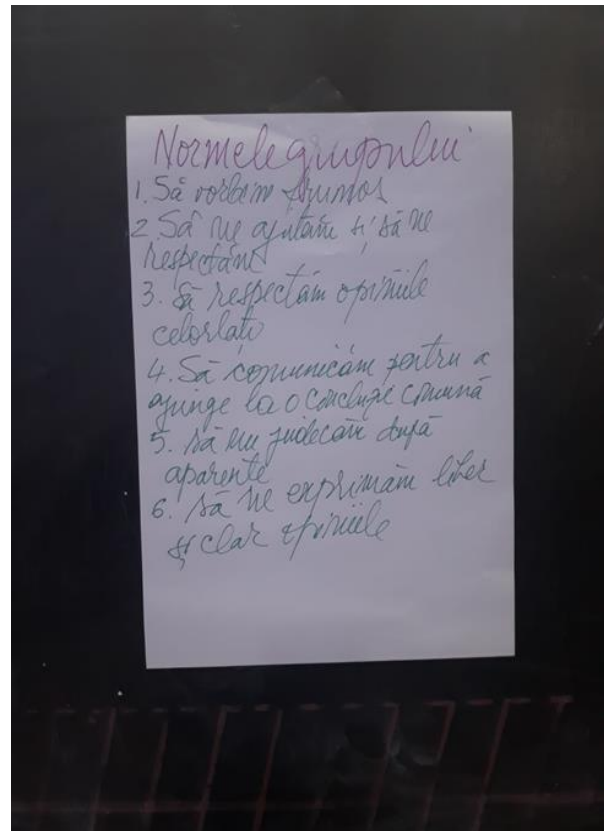 Normele grupului
1. Să vorbim frumos
2. Să ne ajutăm și să ne
respectăm
3. Să respectăm opiniile
celorlați
4. Să comunicăm pentru a
ajunge la o concluzie comună
5. Să nu judecăm după
aparente
6. Să ne exprimăm liber
și clar opiniile